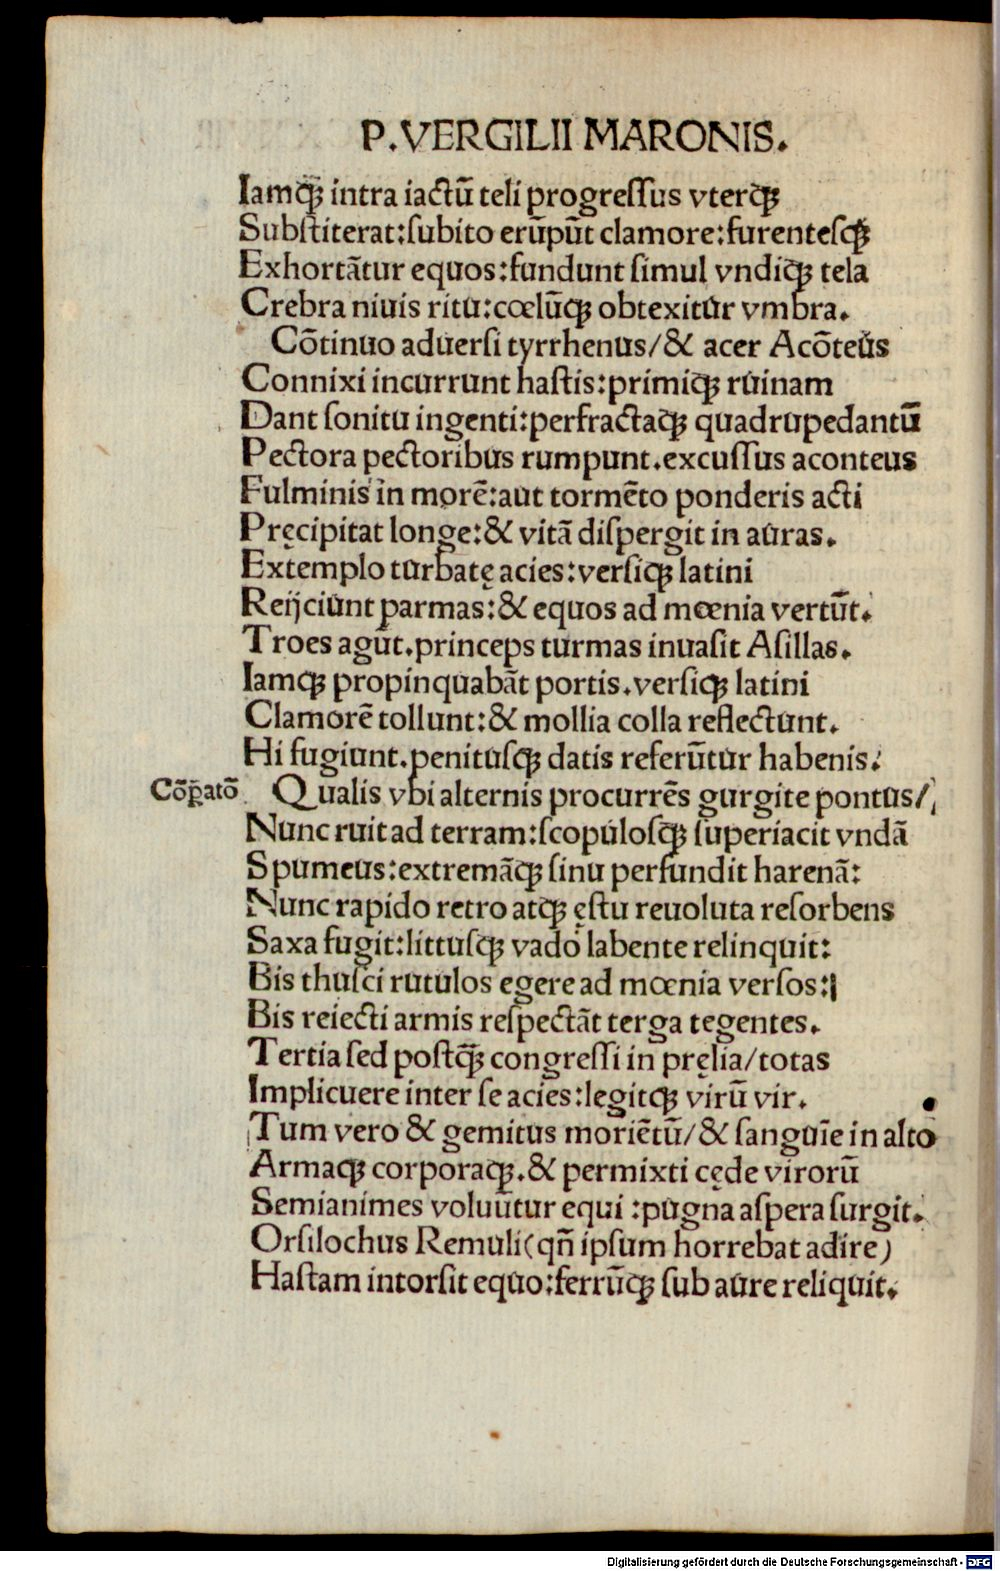 P. VERGILII MARONIS.
Iamqꝫ intra iactū teli progreſſus vterqꝫ
Subſtiterat: ſubito erūpūt clamore: furenteſqꝫ
Exhortātur equos: fundunt ſimul vndiqꝫ tela
Crebra niuis ritu: cœlūqꝫ obtexitur vmbra.
Cōtinuo aduerſi tyrrhenus/ & acer Acōteus
Connixi incurrunt haſtis: primiqꝫ ruinam
Dant ſonitu ingenti: perfractaqꝫ quadrupedantū
Pectora pectoribus rumpunt. excuſſus aconteus
Fulminis in morē: aut tormēto ponderis acti
Pręcipitat longe: & vitā diſpergit in auras.
Extemplo turbatę acies: verſiqꝫ latini
Reijciunt parmas: & equos ad mœnia vertūt.
Troes agūt. princeps turmas inuaſit Aſillas.
Iamqꝫ propinquabāt portis. verſiqꝫ latini
Clamorē tollunt: & mollia colla reflectunt.
Hi fugiunt. penituſqꝫ datis referūtur habenis.
Cōꝑatō
Qualis vbi alternis procurrēs gurgite pontus/
Nunc ruit ad terram: ſcopuloſqꝫ ſuperiacit vndā
Spumeus: extremāqꝫ ſinu perfundit harenā:
Nunc rapido retro atqꝫ ęſtu reuoluta reſorbens
Saxa fugit: littuſqꝫ vado labente relinquit:
Bis thuſci rutulos egere ad mœnia verſos:
Bis reiecti armis reſpectāt terga tegentes.
Tertia ſed poſtqꝫ̄ congreſſi in pręlia/ totas
Implicuere inter ſe acies: legitqꝫ virū vir.
Tum vero & gemitus moriētū/ & ſanguīe in alto
Armaqꝫ corporaqꝫ. & permixti cęde virorū
Semianimes voluūtur equi: pugna aſpera ſurgit.
Orſilochus Remuli (qn̄ ipſum horrebat adire)
Haſtam intorſit equo: ferrūqꝫ ſub aure reliquit.
Digitalisierung gefördert durch die Deutsche Forschungsgemeinschaft - DFG